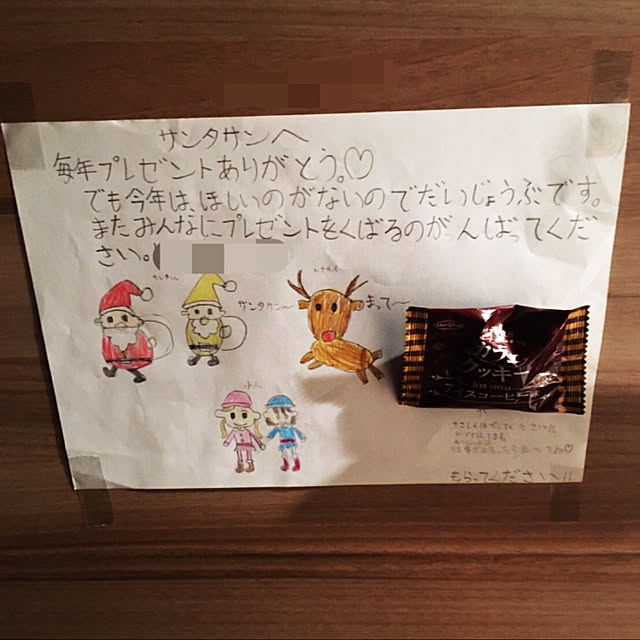 サンタサンへ
毎年プレゼントありがとう。♡
でも今年は、ほしいのがないのでだいじょうぶです。
またみんなにプレゼントをくばるのがんばってくだ
さい。
サンタサン〜
まって〜
カフェ
クッキー
アイスコーヒー
もらってください!!